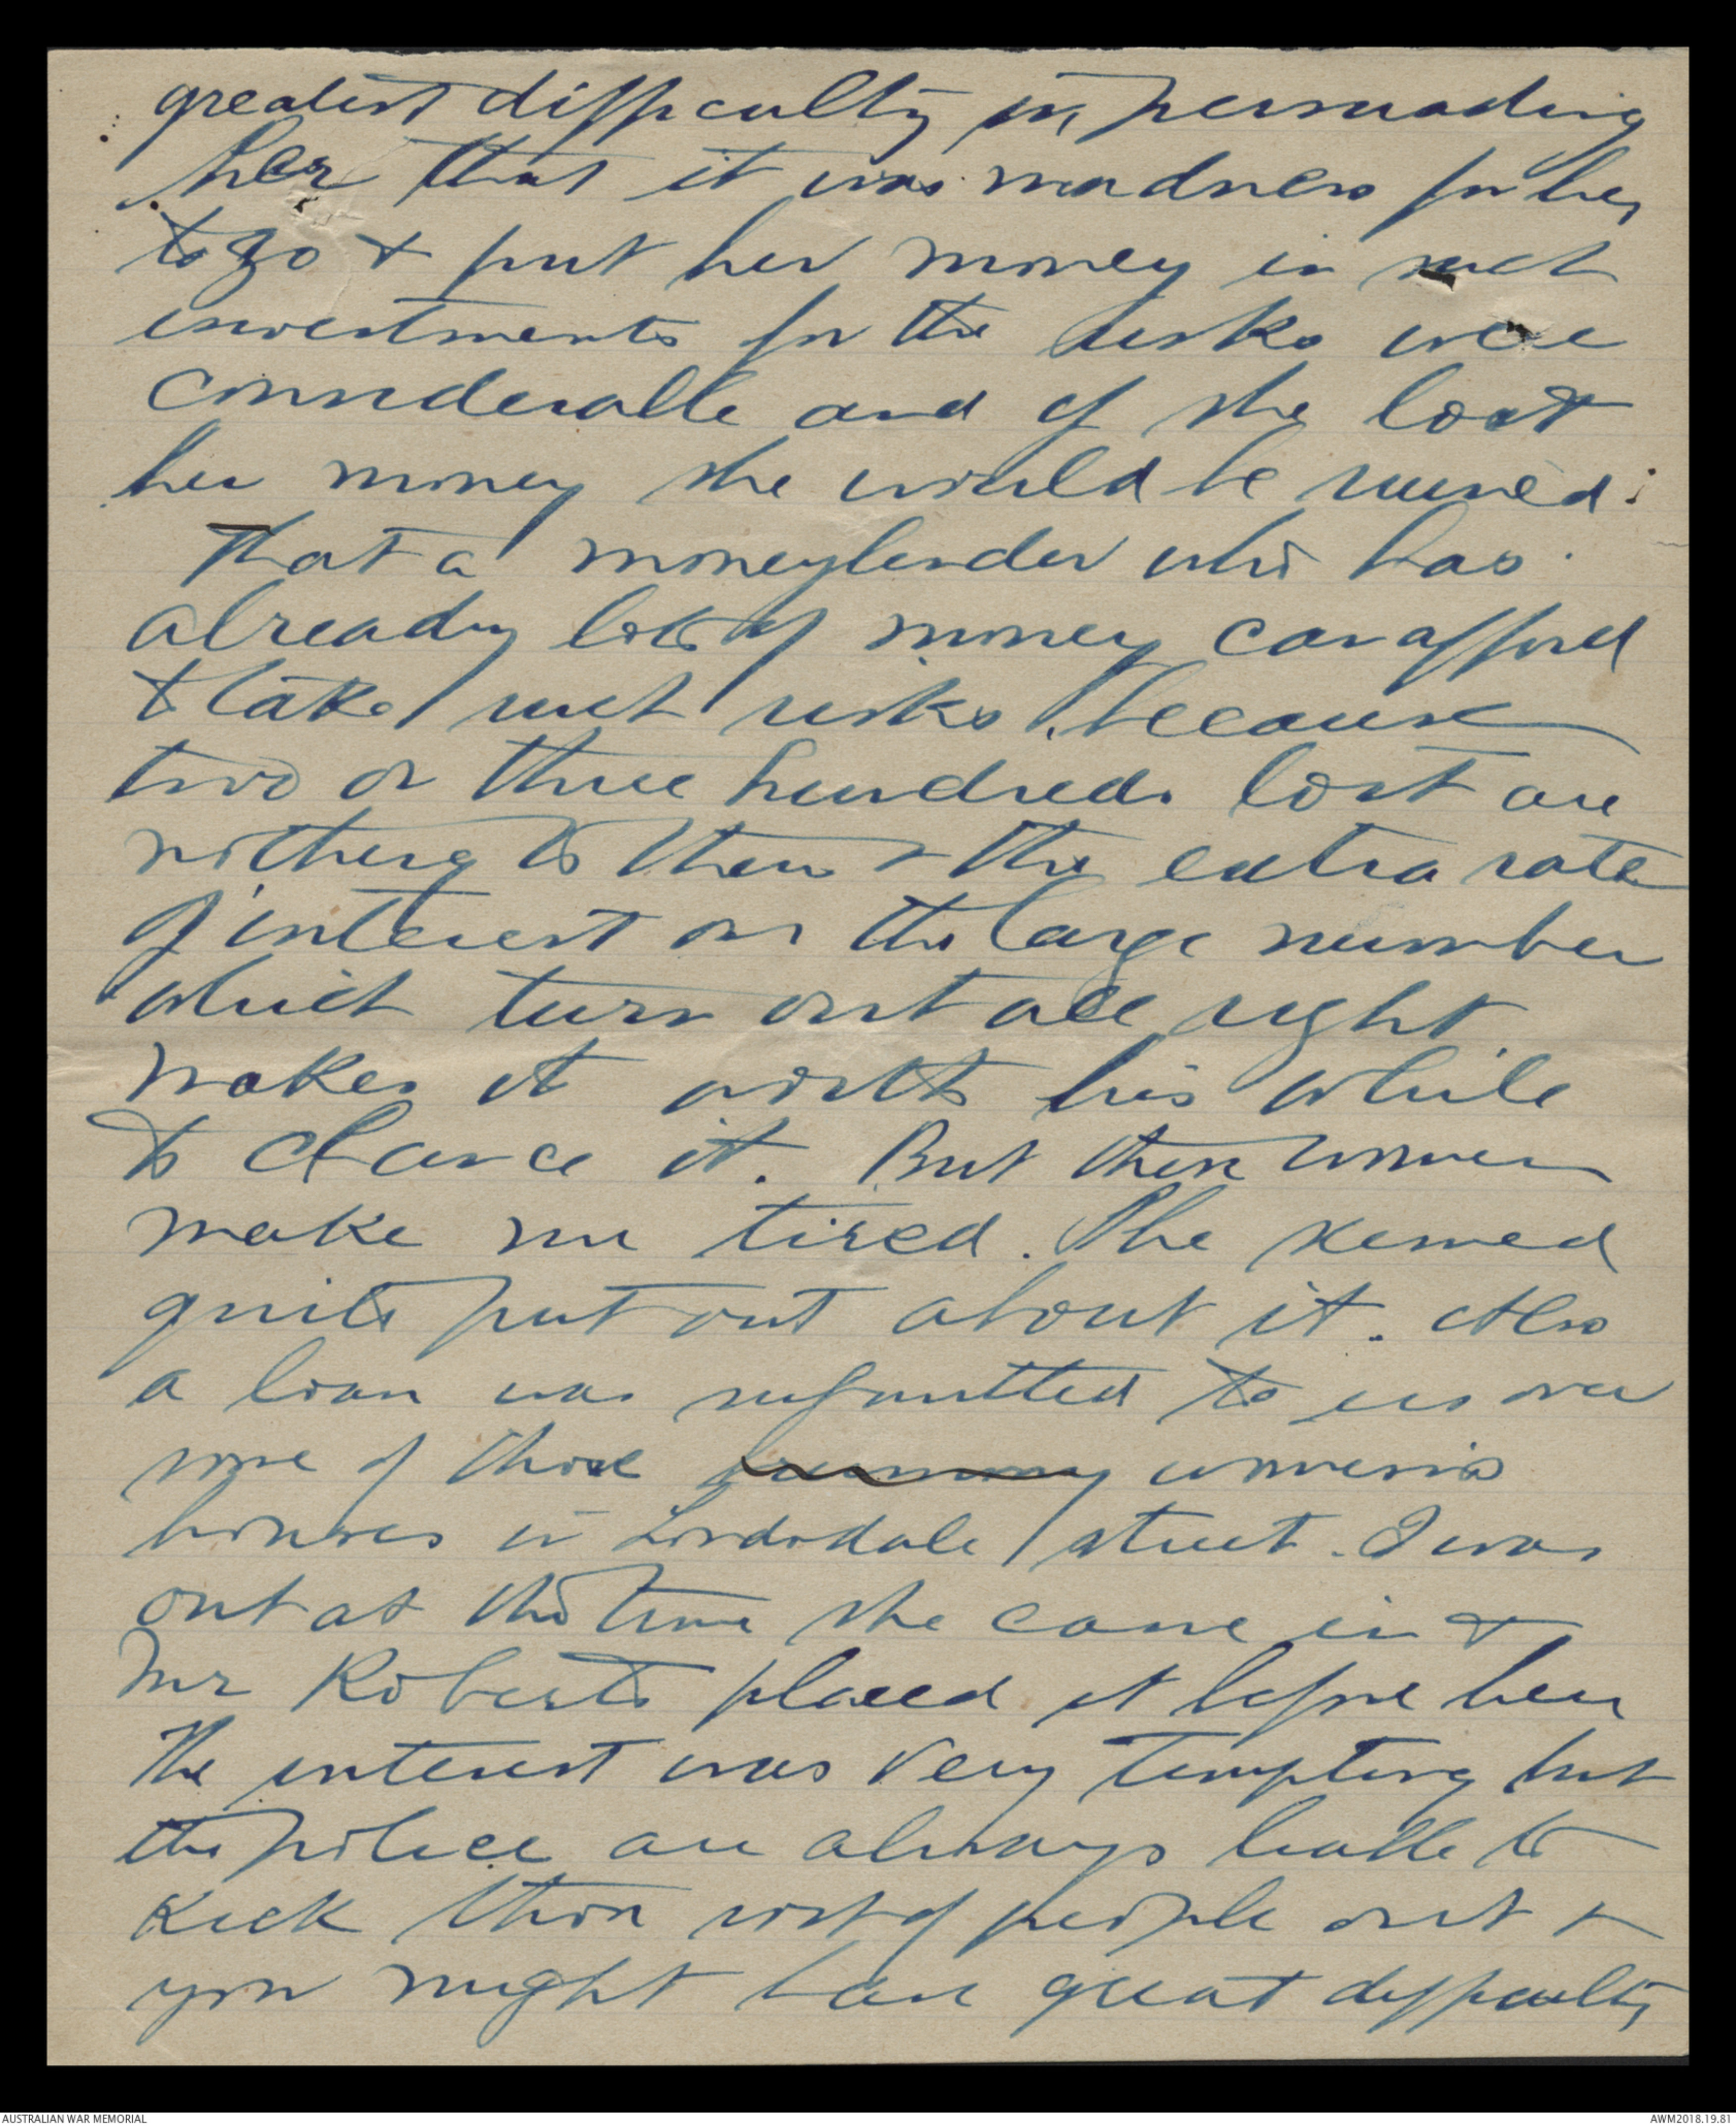 greatest difficulty in persuading
her that it was madness for her
to go & put her money in such
investments for the risks were
considerable and if she lost
her money she would be ruined:
That a moneylender who has
already lots of money can afford
to take such risks, because
two or three hundreds lost are
nothing to them & the extra rate
of interest on the large number
which turn out all right
makes it worth his while
to chance it. But these women
make me tired. She seemed
quite put out about it. Also
a loan was submitted to us over
some of those women's
houses in Lonsdale street. I was
out at the time she came in &
Mr Roberts placed it before her
The interest was very tempting but
the police are always liable to
kick those sort of people out &
you might have great difficulty
AUSTRALIAN WAR MEMORIAL
AWM2018.19.81